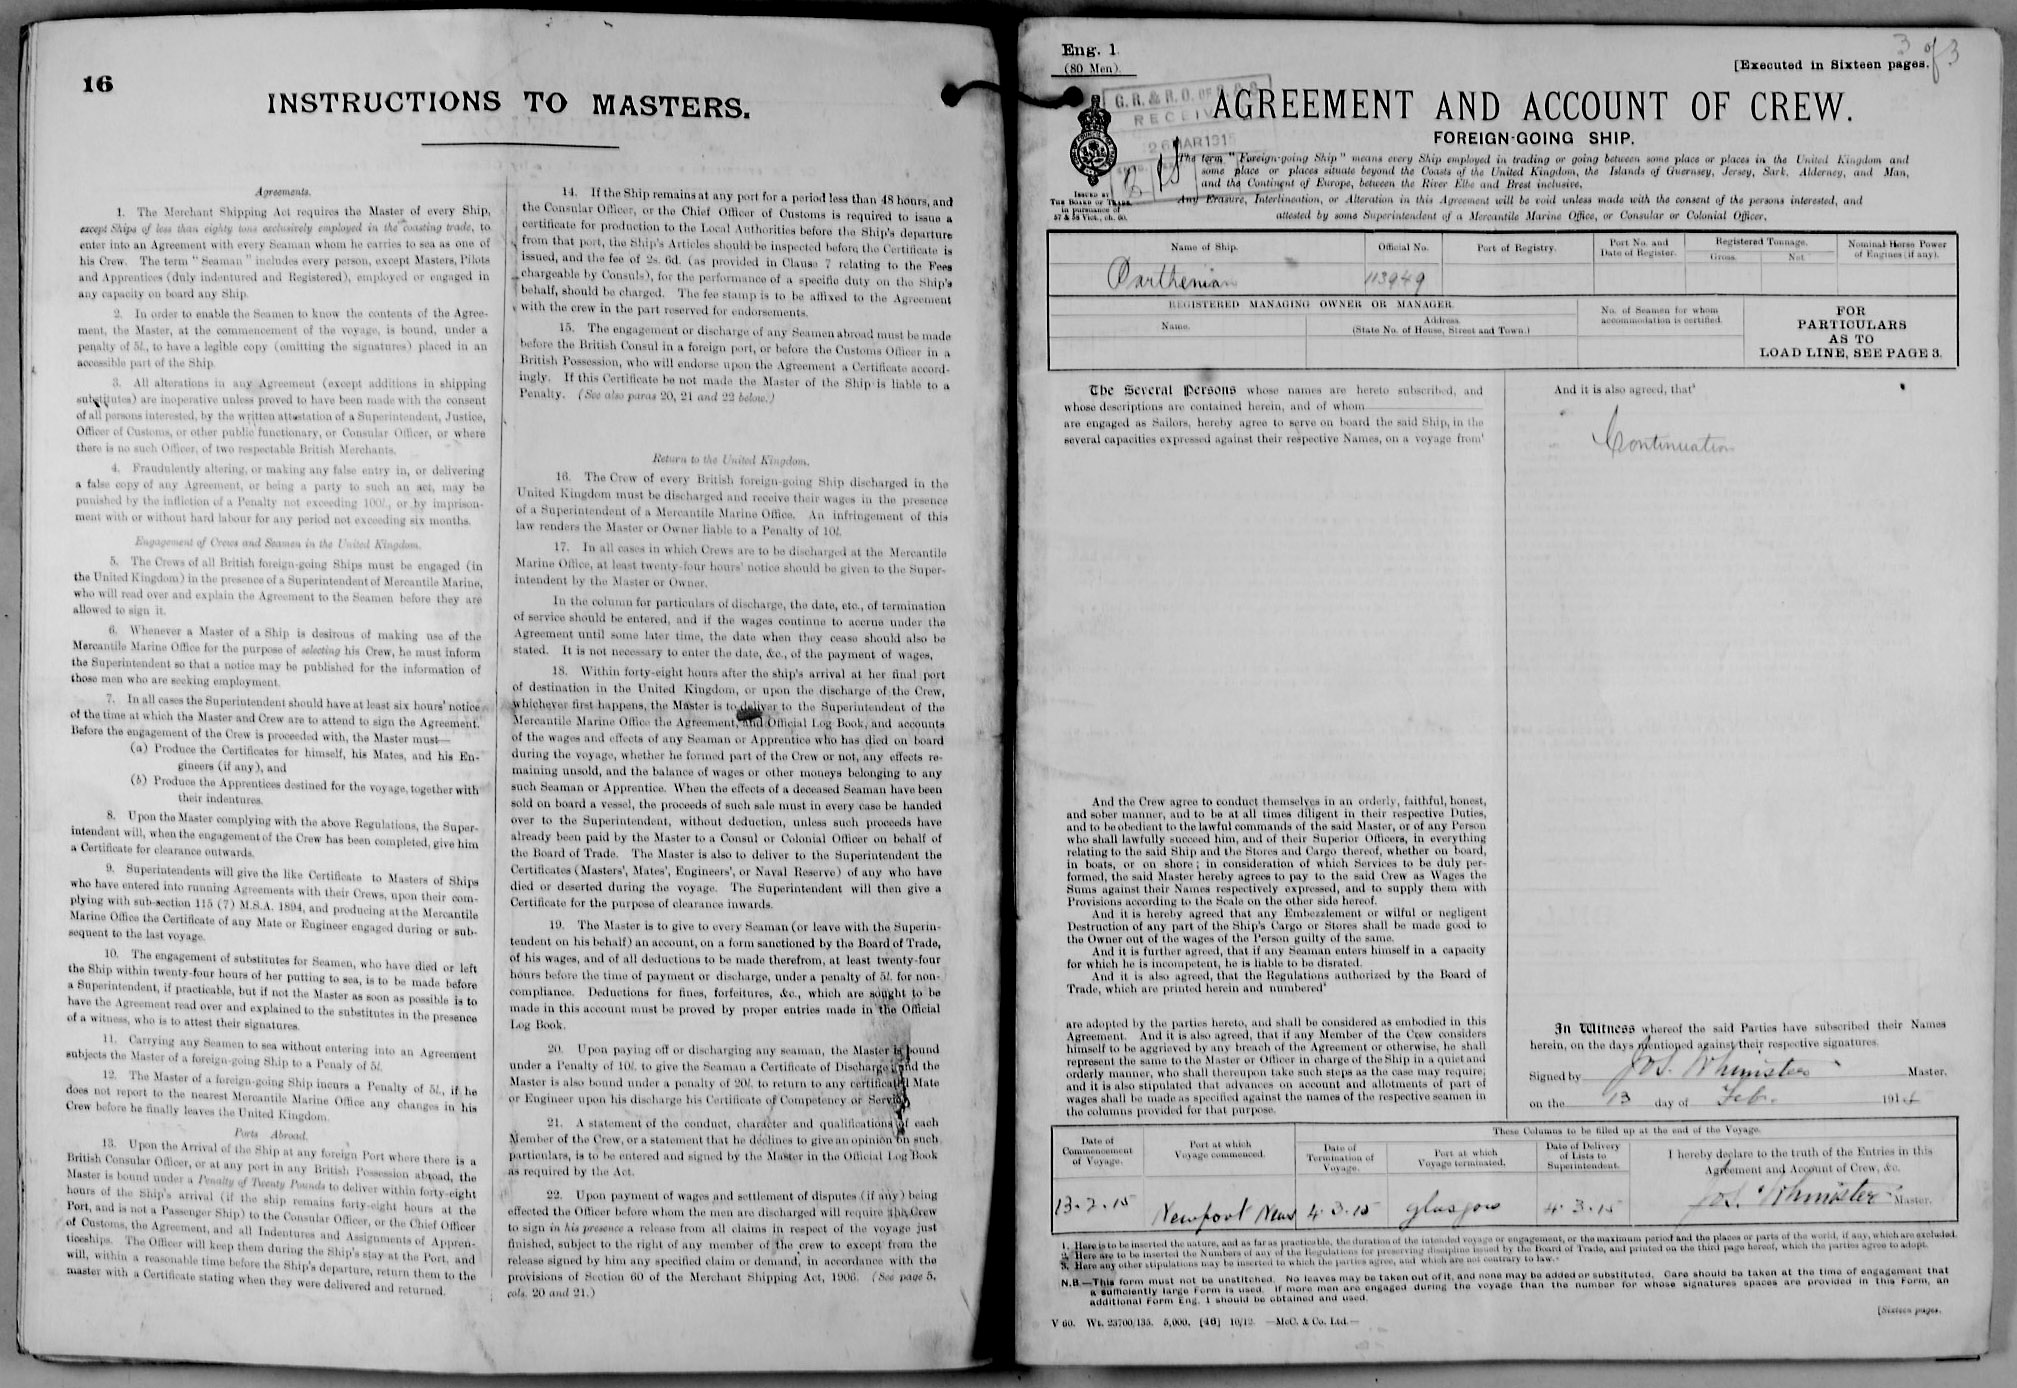 16
INSTRUCTIONS TO MASTERS.
Agreements.
1. The Merchant Shipping Act requires the Master of every Ship,
except Ships of less than eighty tons exclusively employed in the coasting trade, to
enter into an Agreement with every Seaman whom he carries to sea as one of
his Crew. The term "Seaman" includes every person, except Masters, Pilots
and Apprentices (duly indentured and Registered), employed or engaged in
any capacity on board any Ship.
2. In order to enable the Seamen to know the contents of the Agree-
ment, the Master, at the commencement of the voyage, is bound, under a
penalty of 5l., to have a legible copy (omitting the signatures) placed in an
accessible part of the Ship.
3. All alterations in any Agreement (except additions in shipping
substitutes) are inoperative unless proved to have been made with the consent
of all persons interested, by the written attestation of a Superintendent, Justice,
Officer of Customs, or other public functionary, or Consular Officer, or where
there is no such Officer, of two respectable British Merchants.
4. Fraudulently altering, or making any false entry in, or delivering
a false copy of any Agreement, or being a party to such an act, may be
punished by the infliction of a Penalty not exceeding 100l., or by imprison-
ment with or without hard labour for any period not exceeding six months.
Engagement of Crews and Seamen in the United Kingdom.
5. The Crews of all British foreign-going Ships must be engaged (in
the United Kingdom) in the presence of a Superintendent of Mercantile Marine,
who will read over and explain the Agreement to the Seamen before they are
allowed to sign it.
6. Whenever a Master of a Ship is desirous of making use of the
Mercantile Marine Office for the purpose of selecting his Crew, he must inform
the Superintendent so that a notice may be published for the information of
those men who are seeking employment.
7. In all cases the Superintendent should have at least six hours' notice
of the time at which the Master and Crew are to attend to sign the Agreement.
Before the engagement of the Crew is proceeded with, the Master must—
(a) Produce the Certificates for himself, his Mates, and his En-
gineers (if any), and
(b) Produce the Apprentices destined for the voyage, together with
their indentures.
8. Upon the Master complying with the above Regulations, the Super-
intendent will, when the engagement of the Crew has been completed, give him
a Certificate for clearance outwards.
9. Superintendents will give the like Certificate to Masters of Ships
who have entered into running Agreements with their Crews, upon their com-
plying with sub-section 115 (7) M.S.A. 1894, and producing at the Mercantile
Marine Office the Certificate of any Mate or Engineer engaged during or sub-
sequent to the last voyage.
10. The engagement of substitutes for Seamen, who have died or left
the Ship within twenty-four hours of her putting to sea, is to be made before
a Superintendent, if practicable, but if not the Master as soon as possible is to
have the Agreement read over and explained to the substitutes in the presence
of a witness, who is to attest their signatures.
11. Carrying any Seamen to sea without entering into an Agreement
subjects the Master of a foreign-going Ship to a Penaly of 5l.
12. The Master of a foreign-going Ship incurs a Penalty of 5l., if he
does not report to the nearest Mercantile Marine Office any changes in his
Crew before he finally leaves the United Kingdom.
Ports Abroad.
13. Upon the Arrival of the Ship at any foreign Port where there is a
British Consular Officer, or at any port in any British Possession abroad, the
Master is bound under a Penalty of Twenty Pounds to deliver within forty-eight
hours of the Ship's arrival (if the ship remains forty-eight hours at the
Port, and is not a Passenger Ship) to the Consular Officer, or the Chief Officer
of Customs, the Agreement, and all Indentures and Assignments of Appren-
ticeships. The Officer will keep them during the Ship's stay at the Port, and
will, within a reasonable time before the Ship's departure, return them to the
master with a Certificate stating when they were delivered and returned.
14. If the Ship remains at any port for a period less than 48 hours, and
the Consular Officer, or the Chief Officer of Customs is required to issue a
certificate for production to the Local Authorities before the Ship's departure
from that port, the Ship's Articles should be inspected before the Certificate is
issued, and the fee of 2s. 6d. (as provided in Clause 7 relating to the Fees
chargeable by Consuls), for the performance of a specific duty on the Ship's
behalf, should be charged. The fee stamp is to be affixed to the Agreement
with the crew in the part reserved for endorsements.
15. The engagement or discharge of any Seamen abroad must be made
before the British Consul in a foreign port, or before the Customs Officer in a
British Possession, who will endorse upon the Agreement a Certificate accord-
ingly. If this Certificate be not made the Master of the Ship is liable to a
Penalty. (See also paras 20, 21 and 22 below.)
Return to the United Kingdom.
16. The Crew of every British foreign-going Ship discharged in the
United Kingdom must be discharged and receive their wages in the presence
of a Superintendent of a Mercantile Marine Office. An infringement of this
law renders the Master or Owner liable to a Penalty of 10l.
17. In all cases in which Crews are to be discharged at the Mercantile
Marine Office, at least twenty-four hours' notice should be given to the Super-
intendent by the Master or Owner.
In the column for particulars of discharge, the date, etc., of termination
of service should be entered, and if the wages continue to accrue under the
Agreement until some later time, the date when they cease should also be
stated. It is not necessary to enter the date, &c., of the payment of wages.
18. Within forty-eight hours after the ship's arrival at her final port
of destination in the United Kingdom, or upon the discharge of the Crew,
whichever first happens, the Master is to deliver to the Superintendent of the
Mercantile Marine Office the Agreement, and Official Log Book, and accounts
of the wages and effects of any Seaman or Apprentice who has died on board
during the voyage, whether he formed part of the Crew or not, any effects re-
maining unsold, and the balance of wages or other moneys belonging to any
such Seaman or Apprentice. When the effects of a deceased Seaman have been
sold on board a vessel, the proceeds of such sale must in every case be handed
over to the Superintendent, without deduction, unless such proceeds have
already been paid by the Master to a Consul or Colonial Officer on behalf of
the Board of Trade. The Master is also to deliver to the Superintendent the
Certificates (Masters', Mates', Engineers', or Naval Reserve) of any who have
died or deserted during the voyage. The Superintendent will then give a
Certificate for the purpose of clearance inwards.
19. The Master is to give to every Seaman (or leave with the Superin-
tendent on his behalf) an account, on a form sanctioned by the Board of Trade,
of his wages, and of all deductions to be made therefrom, at least twenty-four
hours before the time of payment or discharge, under a penalty of 5l. for non-
compliance. Deductions for fines, forfeitures, &c., which are sought to be
made in this account must be proved by proper entries made in the Official
Log Book.
20. Upon paying off or discharging any seaman, the Master is bound
under a Penalty of 10l. to give the Seaman a Certificate of Discharge, and the
Master is also bound under a penalty of 20l. to return to any certificated Mate
or Engineer upon his discharge his Certificate of Competency or Service.
21. A statement of the conduct, character and qualifications of each
Member of the Crew, or a statement that he declines to give an opinion on such
particulars, is to be entered and signed by the Master in the Official Log Book
as required by the Act.
22. Upon payment of wages and settlement of disputes (if any) being
effected the Officer before whom the men are discharged will require the Crew
to sign in his presence a release from all claims in respect of the voyage just
finished, subject to the right of any member of the crew to except from the
release signed by him any specified claim or demand, in accordance with the
provisions of Section 60 of the Merchant Shipping Act, 1906. (See page 5,
cols. 20 and 21.)
Eng. 1
(80 Men).
3 of 3
[Executed in Sixteen pages.
G. R. & R. O. OF
RECEIV
26 MAR 1915
AGREEMENT AND ACCOUNT OF CREW.
FOREIGN-GOING SHIP.
The term "Foreign-going Ship" means every Ship employed in trading or going between some place or places in the United Kingdom and
some place or places situate beyond the Coasts of the United Kingdom, the Islands of Guernsey, Jersey, Sark, Alderney, and Man,
and the Continent of Europe, between the River Elbe and Brest inclusive.
ISSUED BY
THE BOARD OF TRADE
in pursuance of
57 & 58 Vict., ch. 60.
Any Erasure, Interlineation, or Alteration in this Agreement will be void unless made with the consent of the persons interested, and
attested by some Superintendent of a Mercantile Marine Office, or Consular or Colonial Officer.
Name of Ship. Official No. Port of Registry. Port No. and Date of Register. Registered Tonnage. Gross. Net. Nominal Horse Power of Engines (if any).
Parthenian 113949
REGISTERED MANAGING OWNER OR MANAGER.
Name. Address. (State No. of House, Street and Town.)
No. of Seamen for whom
accommodation is certified.
FOR
PARTICULARS
AS TO
LOAD LINE, SEE PAGE 3.
The Several Persons whose names are hereto subscribed, and
whose descriptions are contained herein, and of whom
are engaged as Sailors, hereby agree to serve on board the said Ship, in the
several capacities expressed against their respective Names, on a voyage from¹
And the Crew agree to conduct themselves in an orderly, faithful, honest,
and sober manner, and to be at all times diligent in their respective Duties,
and to be obedient to the lawful commands of the said Master, or of any Person
who shall lawfully succeed him, and of their Superior Officers, in everything
relating to the said Ship and the Stores and Cargo thereof, whether on board,
in boats, or on shore; in consideration of which Services to be duly per-
formed, the said Master hereby agrees to pay to the said Crew as Wages the
Sums against their Names respectively expressed, and to supply them with
Provisions according to the Scale on the other side hereof.
And it is hereby agreed that any Embezzlement or wilful or negligent
Destruction of any part of the Ship's Cargo or Stores shall be made good to
the Owner out of the wages of the Person guilty of the same.
And it is further agreed, that if any Seaman enters himself in a capacity
for which he is incompetent, he is liable to be disrated.
And it is also agreed, that the Regulations authorized by the Board of
Trade, which are printed herein and numbered²
are adopted by the parties hereto, and shall be considered as embodied in this
Agreement. And it is also agreed, that if any Member of the Crew considers
himself to be aggrieved by any breach of the Agreement or otherwise, he shall
represent the same to the Master or Officer in charge of the Ship in a quiet and
orderly manner, who shall thereupon take such steps as the case may require;
and it is also stipulated that advances on account and allotments of part of
wages shall be made as specified against the names of the respective seamen in
the columns provided for that purpose.
And it is also agreed, that³
Continuation
In Witness whereof the said Parties have subscribed their Names
herein, on the days mentioned against their respective signatures.
Signed by Jos. Whimster Master.
on the 13 day of Feb. 191
Date of Commencement of Voyage. Port at which Voyage commenced. These Columns to be filled up at the end of the Voyage.
Date of Termination of Voyage. Port at which Voyage terminated. Date of Delivery of Lists to Superintendent. I hereby declare to the truth of the Entries in this Agreement and Account of Crew, &c.
13.2.15 Newport News 4.3.15 Glasgow 4.3.15 Jos. Whimster Master.
1. Here is to be inserted the nature, and as far as practicable, the duration of the intended voyage or engagement, or the maximum period and the places or parts of the world, if any, which are excluded.
2. Here are to be inserted the Numbers of any of the Regulations for preserving discipline issued by the Board of Trade, and printed on the third page hereof, which the parties agree to adopt.
3. Here any other stipulations may be inserted to which the parties agree, and which are not contrary to law.
N.B.—This form must not be unstitched. No leaves may be taken out of it, and none may be added or substituted. Care should be taken at the time of engagement that
a sufficiently large Form is used. If more men are engaged during the voyage than the number for whose signatures spaces are provided in this Form, an
additional Form Eng. 1 should be obtained and used.
[Sixteen pages.
V 60. Wt. 23700/135. 5,000. [46] 10/12. —McC. & Co. Ltd.—